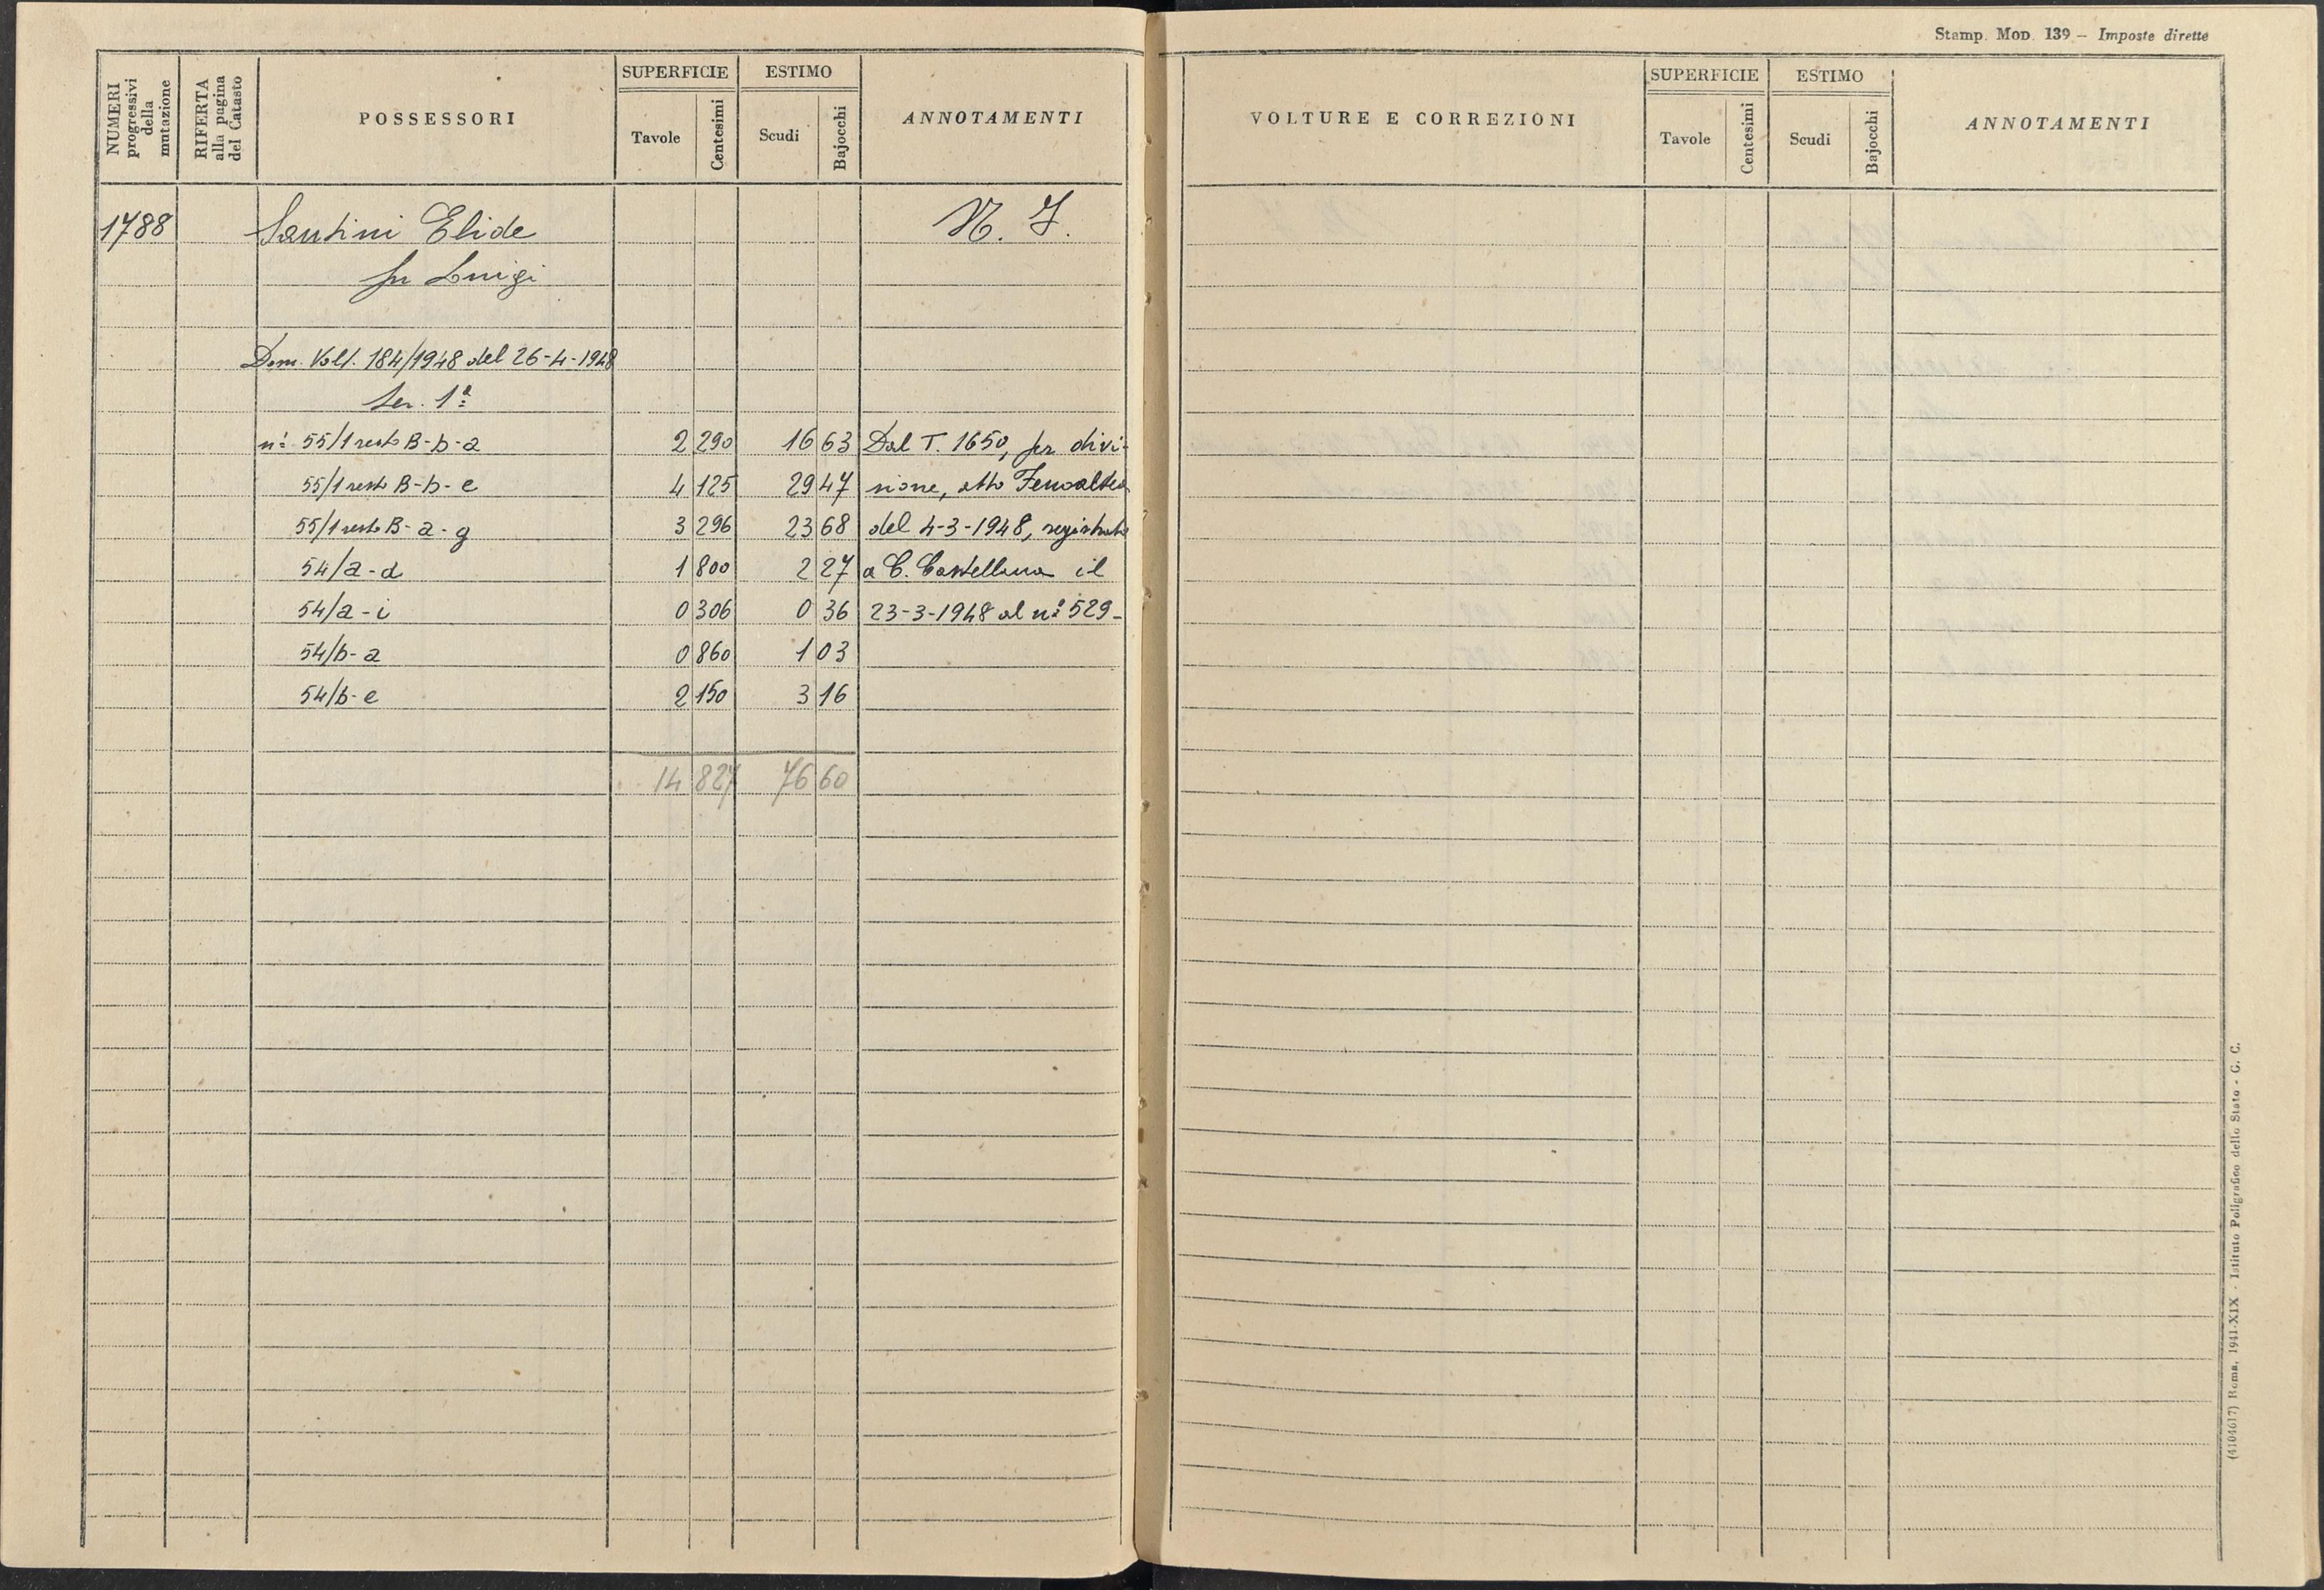 NUMERI progressivi della mutazione
RIFERTA alla pagina del Catasto
POSSESSORI
SUPERFICIE
Tavole
Centesimi
ESTIMO
Scudi
Bajocchi
ANNOTAMENTI
1788 Santini Elide N. I.
fu Luigi
Dom. Volt. 184/1948 del 26-4-1948
Sez. 1ª
n° 55/1 resto B-b-a 2 290 16 63 Dal T. 1650, per divi-
55/1 resto B-b-e 4 125 29 47 sione, atto Fenoaltea
55/1 resto B-a-g 3 296 23 68 del 4-3-1948, registrato
54/a-d 1 800 2 27 a C. Castellana il
54/a-i 0 306 0 36 23-3-1948 al n° 529-
54/b-a 0 860 1 03
54/b-e 2 150 3 16
14 827 76 60
Stamp. Mod. 139 – Imposte dirette
VOLTURE E CORREZIONI
SUPERFICIE
Tavole
Centesimi
ESTIMO
Scudi
Bajocchi
ANNOTAMENTI
(4104617) Roma, 1941-XIX - Istituto Poligrafico dello Stato - G. C.